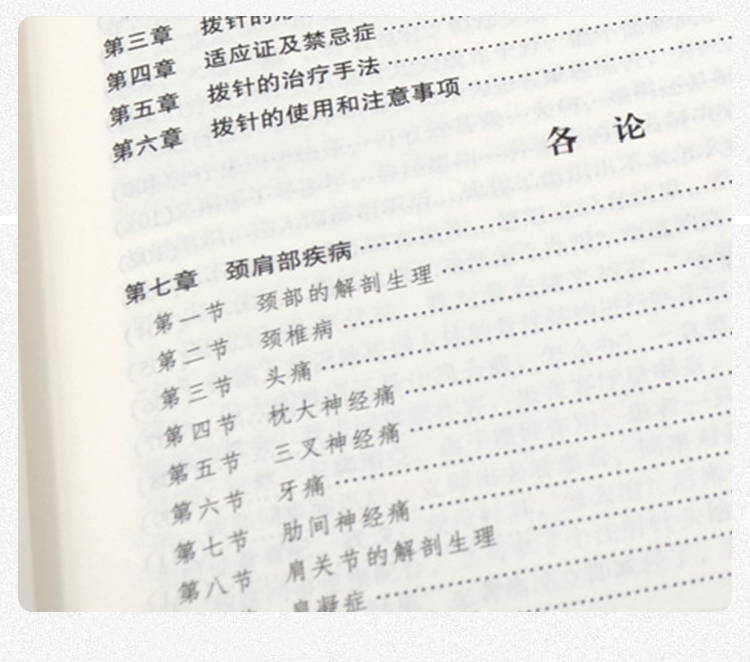 第三章 拨针的
第四章 适应证及禁忌症
第五章 拨针的治疗手法
第六章 拨针的使用和注意事项
各 论
第七章 颈肩部疾病
第一节 颈部的解剖生理
第二节 颈椎病
第三节 头痛
第四节 枕大神经痛
第五节 三叉神经痛
第六节 牙痛
第七节 肋间神经痛
第八节 肩关节的解剖生理
肩凝症